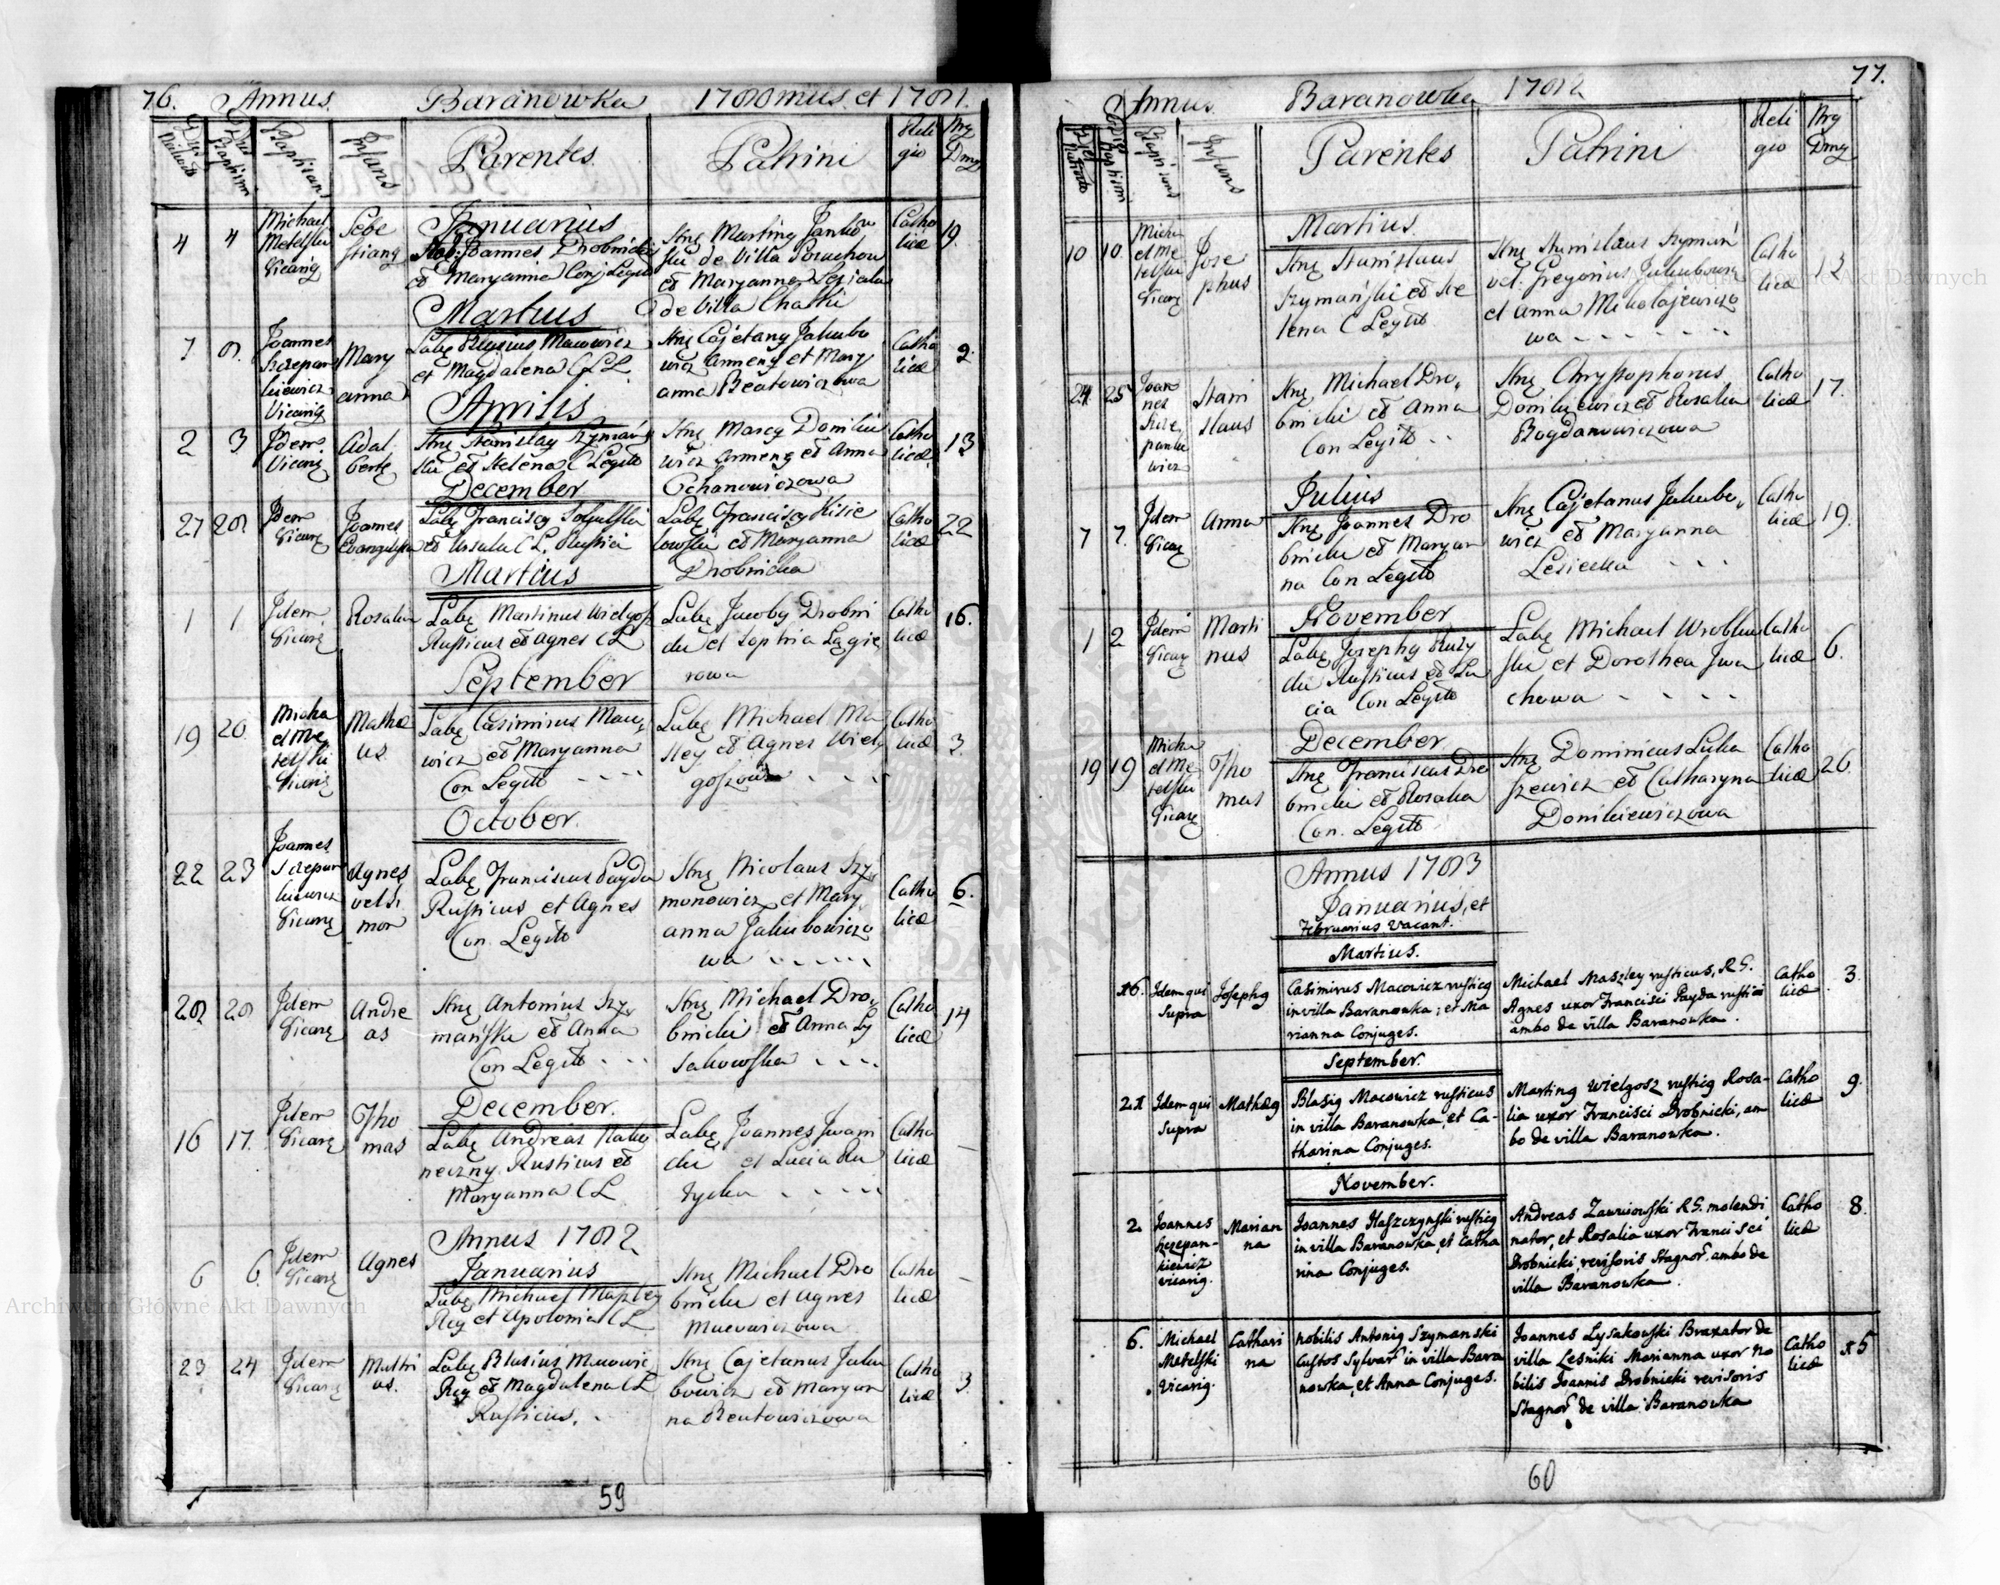 76. Annus. Baranowka 1780mus et 1781.
Dies Nativit
Dies Baptismi
Baptisans
Infans
Parentes.
Patrini
Reli
gio
Nrg
Dmg
Januarius
4 4
Michael
Metelski
Vicarig
Seba
stiang
Joannes Drobnicki
et Maryanna Conj Legit
Gng Marting Jankow
ski de Villa
et Maryanna
de Villa
Catho
licæ
19.
Martius
7 8.
Joannes
Szczepan
kiewicz
Vicarig
Mary
anna
Labg Blasius Macowicz
et Magdalena C L.
Gng Cajetang Jakubo
wicz Armeng et Mary
anna Beatowiczowa
Catho
licæ
2.
Aprilis
2 3
Jdem
Vicarig
Adal
bertg
Gng Stanislag Szymań
ski et Helena C Legit
Gng Marcg Doniki
wicz Armeng et Anna
Ochanowiczowa
Catho
licæ
13
December
27 28.
Jdem
Vicarg
Joannes
Evangelista
Labg Franciscg
et Ursula C L. Rustici
Labg Franciscg Kisie
lowski et Maryanna
Drobnicka
Catho
licæ
22
Martius
1 1.
Jdem
Vicarg
Rosalia
Labg Martinus Wielgosz
Rusticus et Agnes C L
Labg Jacobg Drobni
cki et Sophia Lagie
rowa
Catho
licæ
16.
September
19 20
Micha
el Me
telski
Vicarig
Mathæ
us
Labg Casimirus Maco
wicz et Maryanna
Con Legit
Labg Michael Ma
sley et Agnes Wiel
goszowa
Catho
licæ
3.
October.
22 23
Joannes
Szczepan
kiewicz
Vicarg
Agnes
vel Si
mon
Labg Franciscus Payda
Rusticus et Agnes
Con. Legit
Gng Nicolaus Szy
monowicz et Mary
anna Jakubowiczo
wa
Catho
licæ
6.
28 28
Jdem
Vicarg
Andre
as
Gng Antonius Szy
mański et Anna
Con Legit
Gng Michael Dro
bnicki et Anna Ły
sakowska
Catho
licæ
14
December.
16 17.
Jdem
Vicarg
Tho
mas
Labg Andreas
Rusticus et
Maryanna C L
Labg Joannes Jwani
cki et Lucia Ru
rycka
Catho
licæ
–
Annus 1782
Januarius
6 6.
Jdem
Vicarg
Agnes
Labg Michael Maszley
Rcg et Apolonia C L
Gng Michael Dro
bnicki et Agnes
Macowiczowa
Catho
licæ
–
23 24
Jdem
Vicarg
Mathi
as.
Labg Blasius Macowic
Rcg et Magdalena C L
Rusticus.
Gng Cajetanus Jaku
bowicz et Maryan
na Beutowiczowa
Catho
licæ
3.
59
Annus Baranowka 1782 77.
Dies Nativit
Dies Baptism
Baptisans
Infans
Parentes
Patrini
Reli
gio
Nrg
Dmg
Martius.
10 10.
Micha
el Me
telski
Vicarg
Jose
phus
Gng Stanislaus
Szymański et He
lena C Legit
Gng Stanislaus Szymań
vel. Gregorius Jakubowic
et Anna Mikolajewiczo
wa
Catho
licæ
13
24 25
Joan
nes
Szcze
panki
wicz
Stani
slaus
Gng Michael Dro
bnicki et Anna
Con Legit
Gng Chrystophorus
Donikiewicz et Rosalia
Bogdanowiczowa
Catho
licæ
17.
Julius
7 7.
Jdem
Vicarg
Anna
Gng Joannes Dro
bnicki et Maryan
na Con Legit
Gng Cajetanus Jakubo
wicz et Maryanna
Lesiecka
Catho
licæ
19.
November
1 2
Jdem
Vicarg
Marti
nus
Labg Josephg Rury
cki Rusticus et Lu
cia Con Legit
Labg Michael Wroblew
ski et Dorothea Jwa
chowa
Catho
licæ
6.
December
19 19
Micha
el Me
telski
Vicarg
Tho
mas
Gng Franciscus Dro
bnicki et Rosalia
Con. Legit
Gng Dominicus Luka
szewicz et Catharyna
Donikiewiczowa
Catho
licæ
26.
Annus 1783
Januarius, et
Februarius Vacant.
Martius.
16.
Idem qui
Supra
Josephg
Casimirus Macowicz rusticg
in villa Baranowka; et Ma
rianna Conjuges.
Michael Maszley rusticus, R G.
Agnes uxor Francisci Payda rustici
ambo de villa Baranowka.
Catho
licæ
3.
September.
21
Idem qui
Supra
Mathæg
Blasig Macowicz rusticus
in villa Baranowka, et Ca-
tharina Conjuges.
Marting Wielgosz rusticg Rosa-
lia uxor Francisci Drobnicki, am
bo de villa Baranowka.
Catho
licæ
9.
November.
2.
Joannes
Szczepan-
kiewicz
vicarig.
Marian
na
Joannes Haszczynski rusticg
in villa Baranowka, et Catha
rina Conjuges.
Andreas Zawniowski R G. molendi
nator, et Rosalia uxor Francisci
Drobnicki, revisoris Stagnor. ambo de
villa Baranowka.
Catho
licæ
8.
6.
Michael
Metelski
Vicarig.
Cathari
na
nobilis Antonig Szymanski
Custos Sylvar. in villa Bara
nowka, et Anna Conjuges.
Joannes Lysakowski Braxator de
villa Lesniki Marianna uxor No
bilis Joannis Drobnicki revisoris
Stagnor. de villa Baranowka
Catho
licæ
15
60
Archiwum Główne Akt Dawnych
Archiwum Główne Akt Dawnych